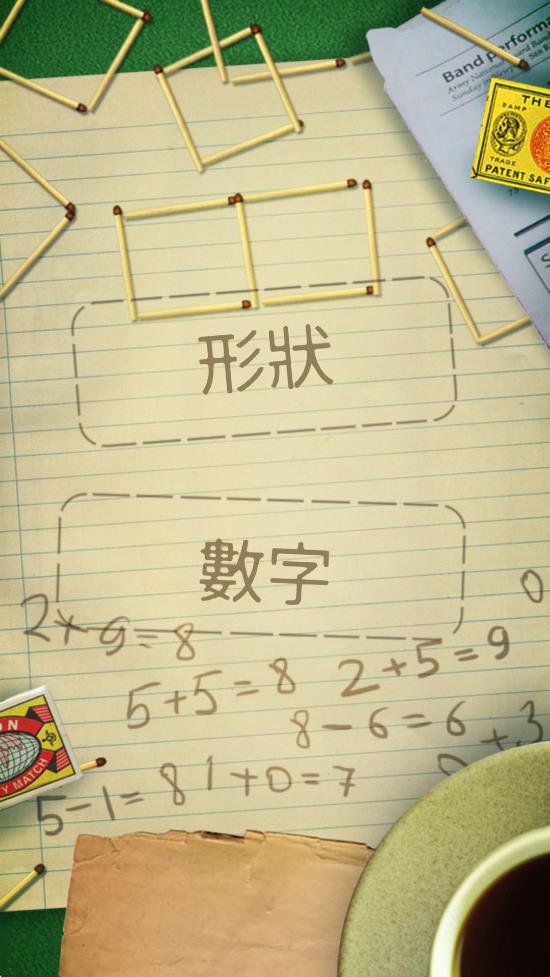 Band Perform
THE
DAMP
TRADE
PATENT SAF
形狀
數字
0
2+9=8
5+5=8
2+5=9
8-6=6
+3
5-1=8
1+0=7
ON
Y MATCH